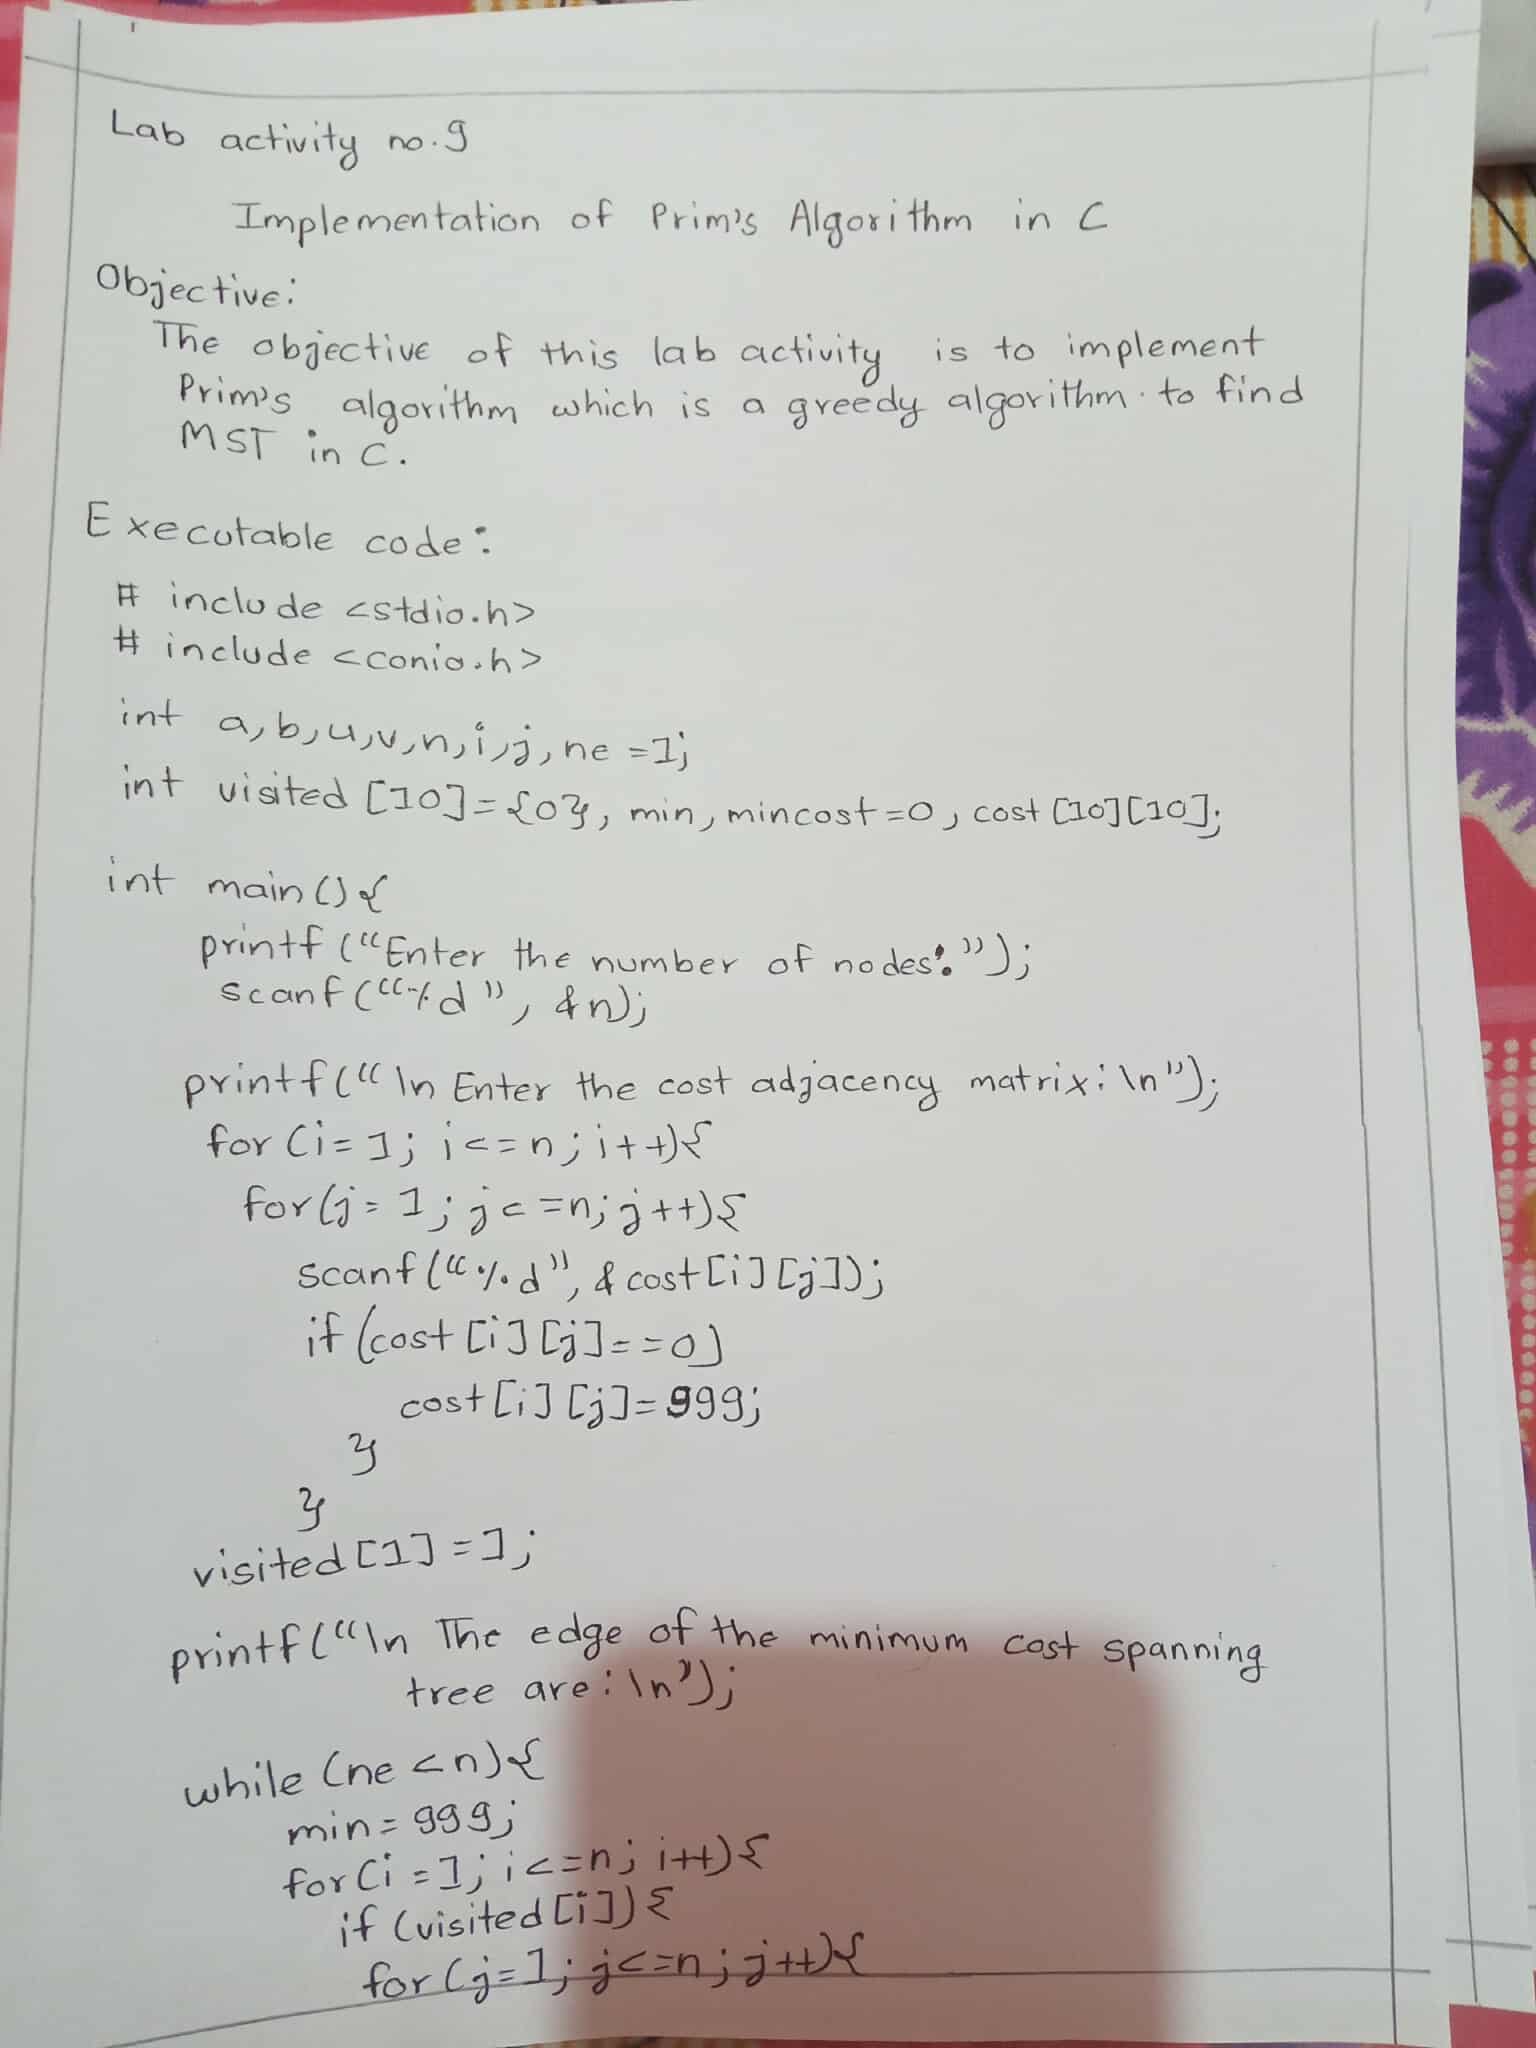 Lab activity no.9
Implementation of Prim's Algorithm in C
Objective:
The objective of this lab activity is to implement
Prim's algorithm which is a greedy algorithm to find
MST in C.
Executable code:
# include <stdio.h>
# include <conio.h>
int a,b,u,v,n,i,j,ne =1;
int visited [10]={0}, min, mincost=0, cost [10][10];
int main(){
printf ("Enter the number of nodes:");
scanf ("%d", &n);
printf("\n Enter the cost adjacency matrix:\n");
for (i=1; i<=n; i++){
for(j=1; j<=n; j++){
scanf("%d", &cost[i][j]);
if (cost [i][j]==0)
cost[i][j]=999;
}
}
visited [1]=1;
printf("\n The edge of the minimum cost spanning
tree are:\n");
while (ne <n){
min=999;
for(i=1; i<=n; i++){
if (visited [i]){
for (j=1; j<=n; j++){